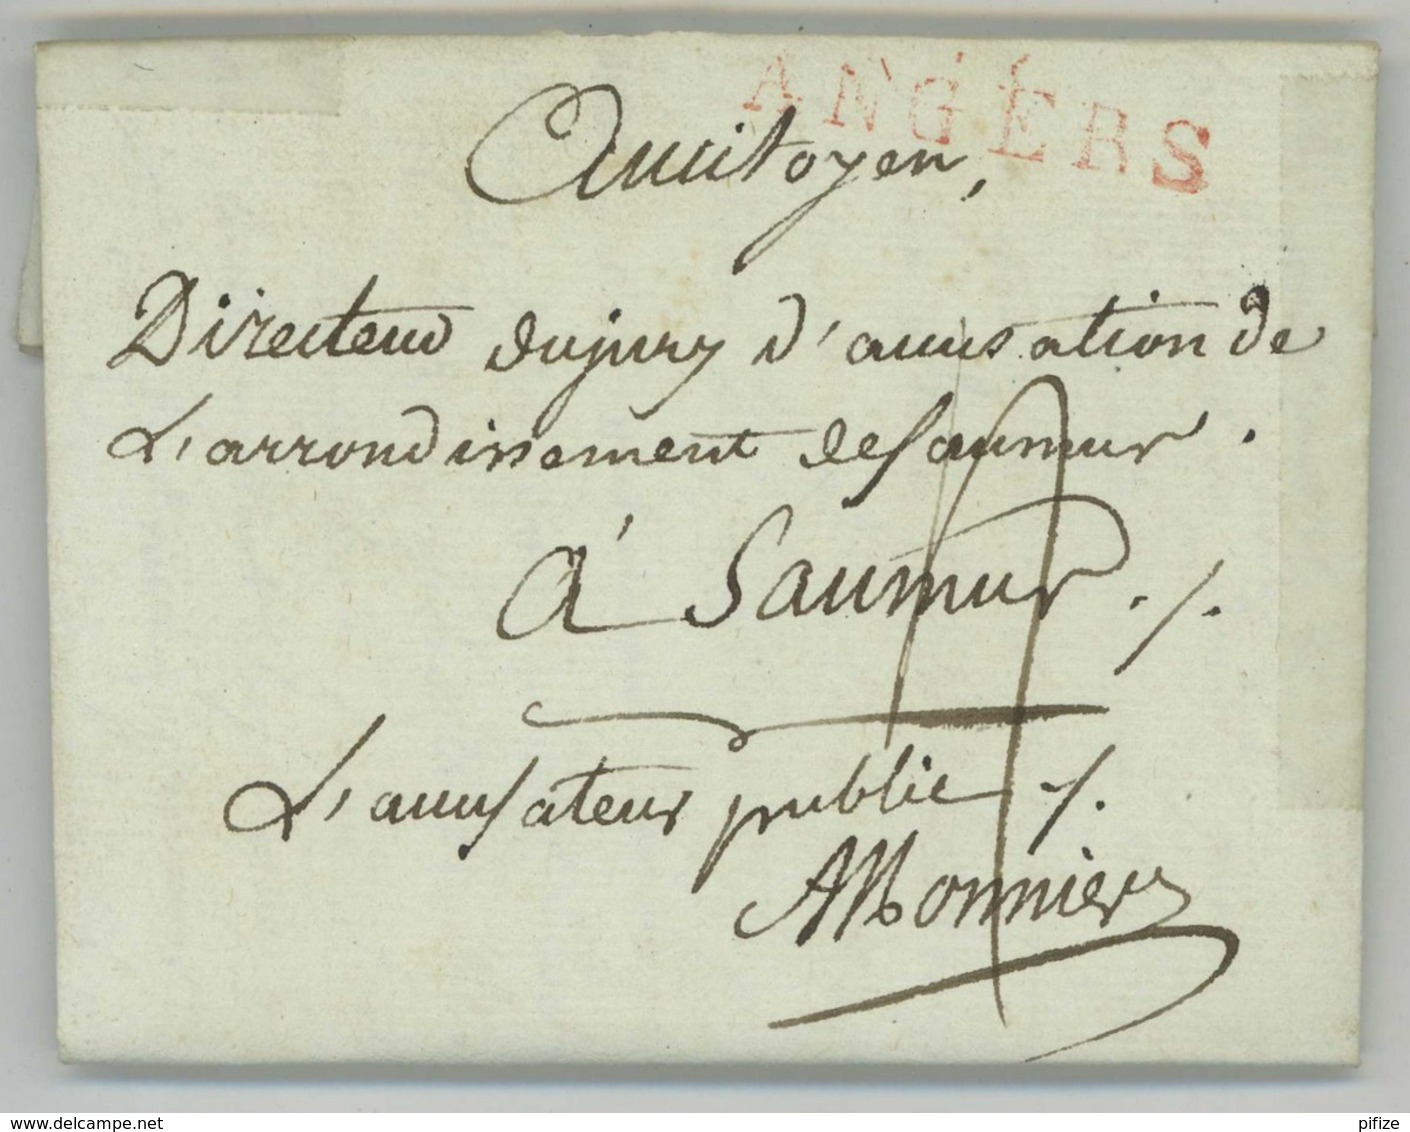 ANGERS
Aucitoyen,
Directeur dujury d'accusation de
L'arrondissement de Saumur.
à Saumur ./.
L'accusateur public /.
AMonnier
www.delcampe.net
pifize